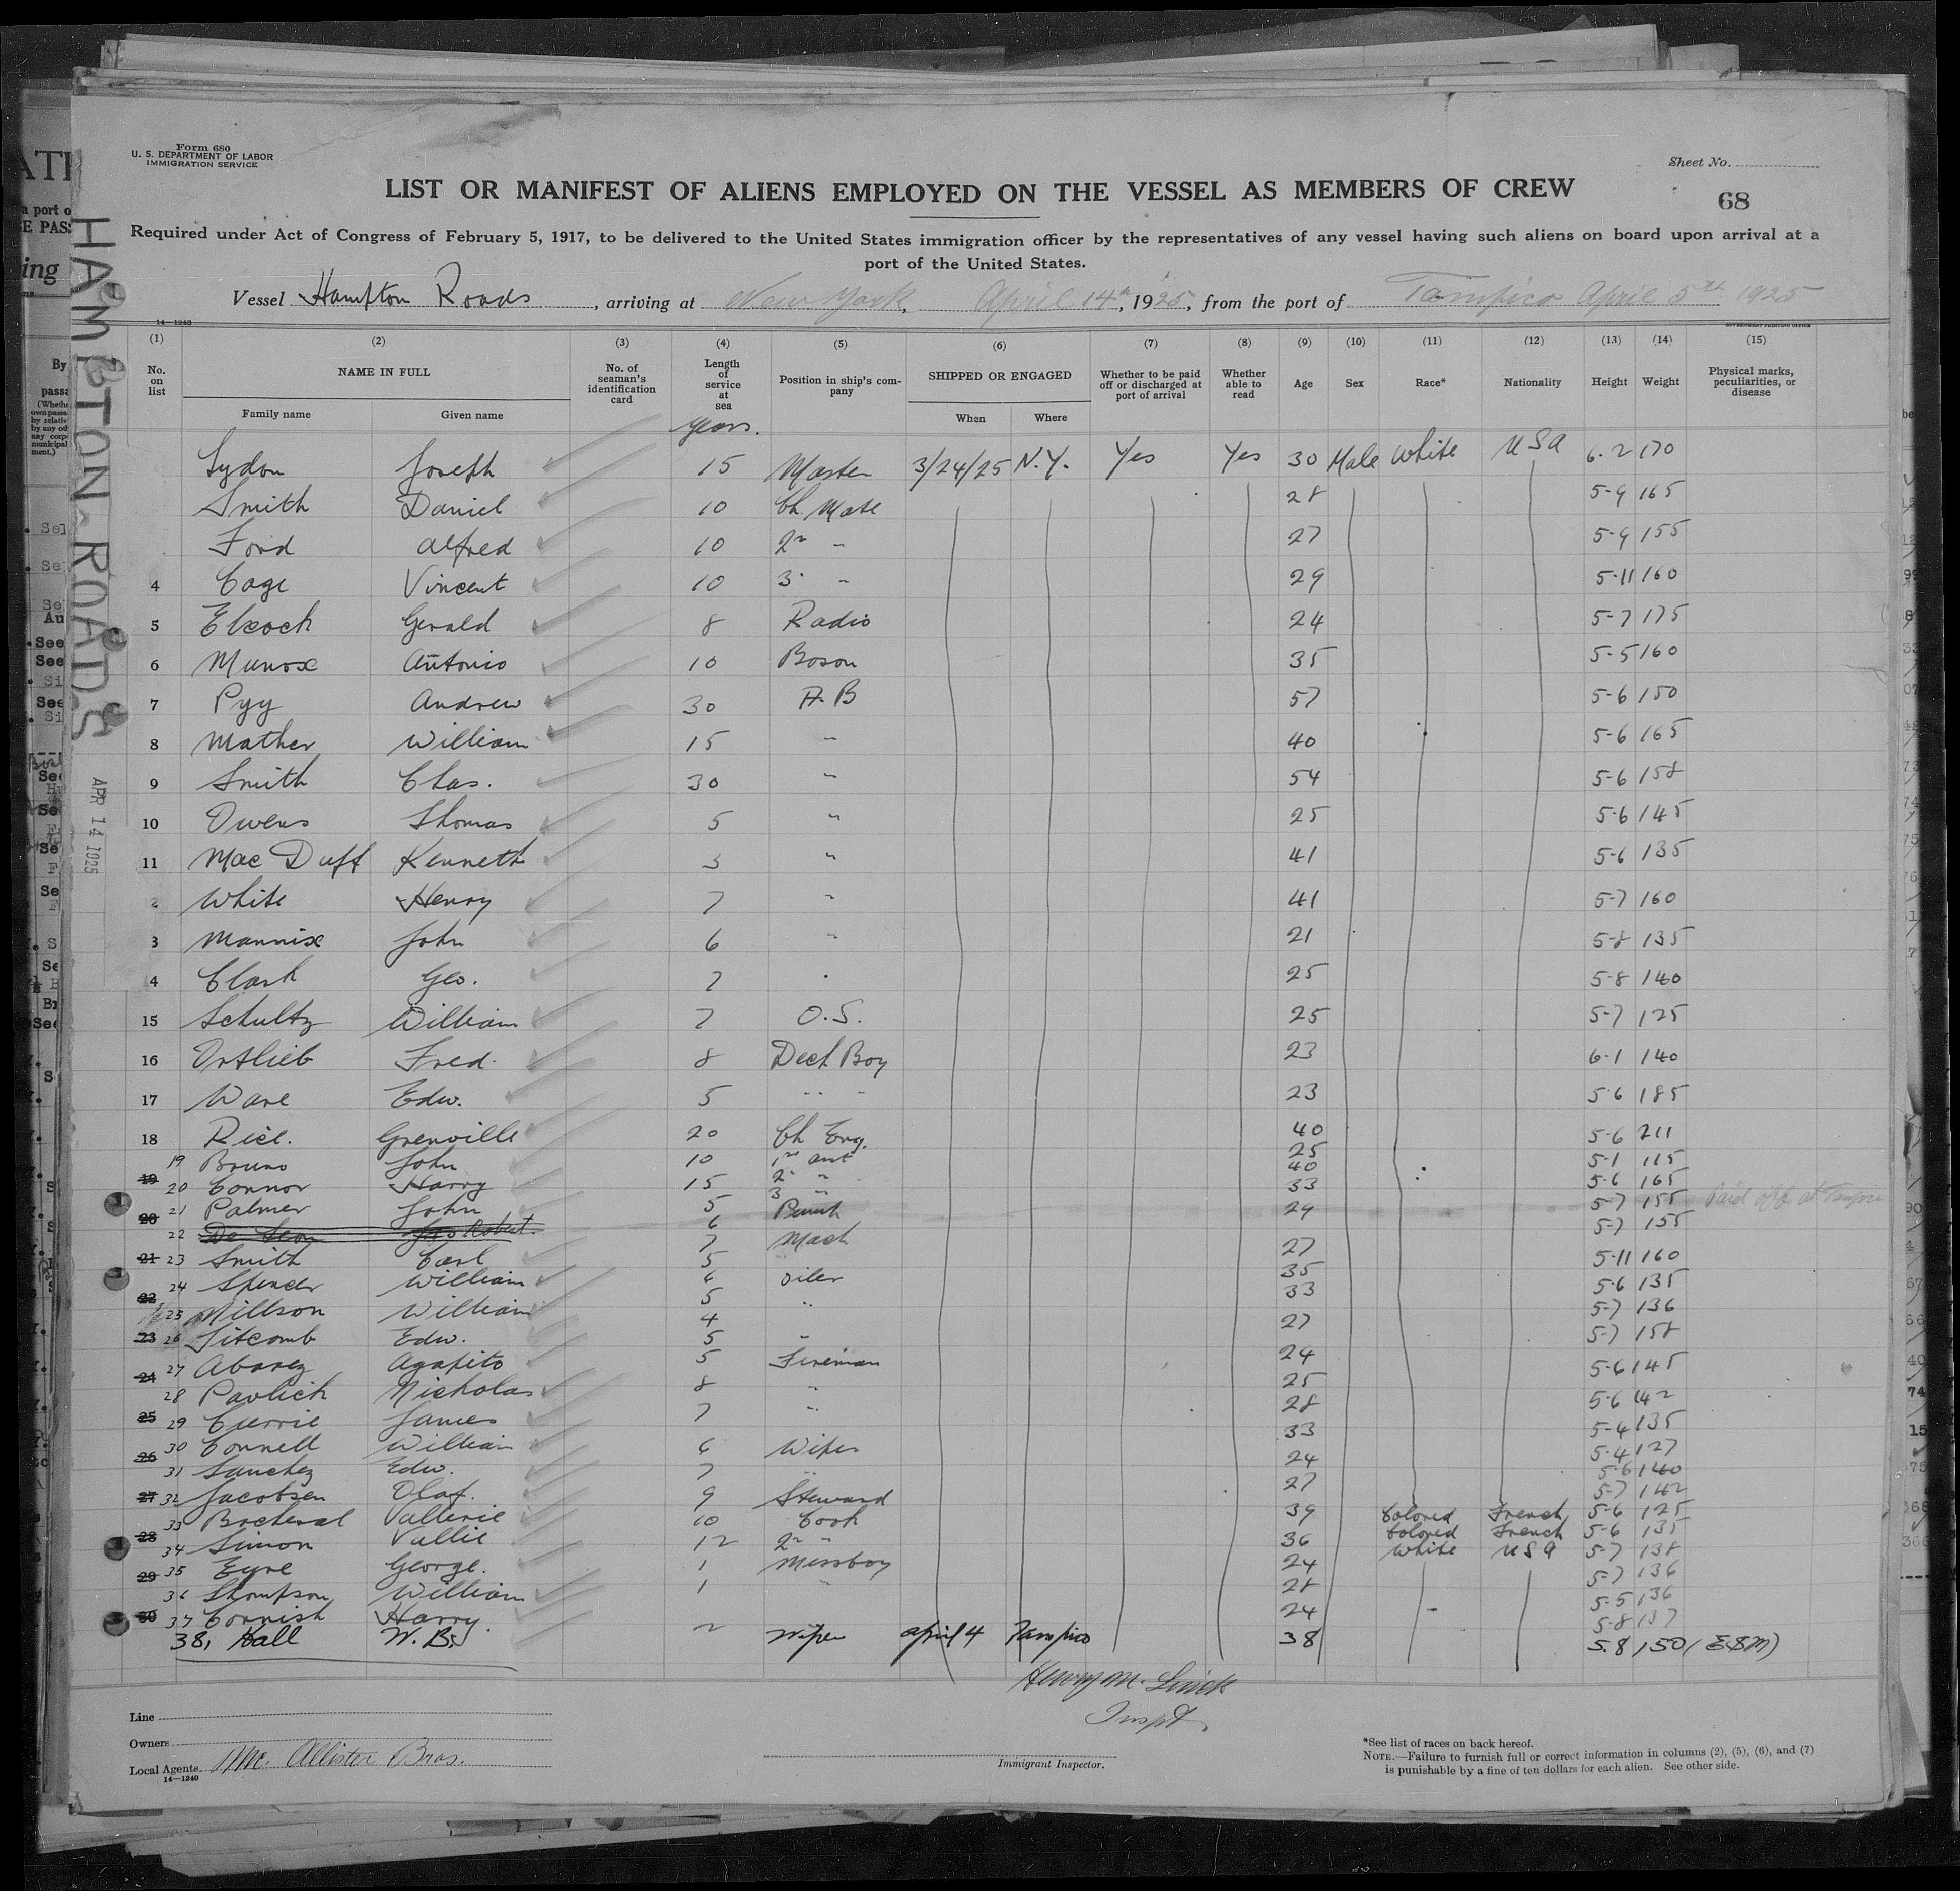 Form 680
U. S. DEPARTMENT OF LABOR
IMMIGRATION SERVICE
Sheet No.
LIST OR MANIFEST OF ALIENS EMPLOYED ON THE VESSEL AS MEMBERS OF CREW
68
Required under Act of Congress of February 5, 1917, to be delivered to the United States immigration officer by the representatives of any vessel having such aliens on board upon arrival at a
port of the United States.
Vessel Hampton Roads, arriving at New York, April 14th, 1925, from the port of Tampico April 5th 1925
HAMPTON ROADS
APR 14 1925
14—1240
GOVERNMENT PRINTING OFFICE
(1) (2) (3) (4) (5) (6) (7) (8) (9) (10) (11) (12) (13) (14) (15)
No. on list NAME IN FULL No. of seaman's identification card Length of service at sea Position in ship's company SHIPPED OR ENGAGED Whether to be paid off or discharged at port of arrival Whether able to read Age Sex Race* Nationality Height Weight Physical marks, peculiarities, or disease
Family name Given name When Where
years.
Lydon Joseph 15 Master 3/24/25 N.Y. Yes Yes 30 Male White USA 6.2 170
Smith Daniel 10 Ch. Mate 28 5-9 165
Ford Alfred 10 2n " 27 5-9 155
4 Cage Vincent 10 3 " 29 5-11 160
5 Elcock Gerald 8 Radio 24 5-7 175
6 Munox Antonio 10 Boson 35 5-5 160
7 Pyy Andrew 30 A.B 57 5-6 150
8 Mather William 15 " 40 5-6 165
9 Smith Chas. 30 " 54 5-6 158
10 Owens Thomas 5 " 25 5-6 145
11 Mac Duff Kenneth 3 " 41 5-6 135
2 White Henry 7 " 41 5-7 160
3 Mannix John 6 " 21 5-8 135
4 Clark Geo. 7 25 5-8 140
15 Schultz William 7 O.S. 25 5-7 125
16 Ortlieb Fred. 8 Deck Boy 23 6-1 140
17 Ware Edw. 5 " " 23 5-6 185
18 Rice. Grenville 20 Ch Eng. 40 5-6 211
19 Bruno John 10 1st ast 25 5-1 115
19 20 Connor Harry 15 2 " 40 5-6 165
20 21 Palmer John 5 3 " 33 5-7 155 Paid off at Tampico
22 De Leon Jas Robert. 6 Pump 29 5-7 155
21 23 Smith Carl 7 Mach 27 5-11 160
24 Spencer William 5 35 5-6 135
22 25 Millson William 6 oiler 33 5-7 136
23 26 Titcomb Edw. 5 " 27 5-7 158
24 27 Abarez Agapito 5 Fireman 24 5-6 145
28 Pavlich Nicholas 8 " 25 5-6 142
25 29 Currie James 7 " 28 5-4 135
26 30 Connell William 6 Wiper 33 5-4 127
31 Sanchez Edw. 7 " 24 5-6 140
27 32 Jacobsen Olaf. 9 Steward 27 5-7 142
33 Bocheral Vallerie 10 Cook 39 Colored French 5-6 125
28 34 Simon Vallie 12 2n " 36 Colored French 5-6 135
29 35 Eyre George. 1 Messboy 24 White USA 5-7 138
36 Thompson William 1 " 28 5-7 136
30 37 Cornish Harry. 24 5-5 136
38, Hall W. B. 2 Wiper April 4 Tampico 38 5.8 150 (E.S.M)
5-8 137
Henry M. Linck
Inspt
Line
Owners
Local Agents Mc. Allister Bros.
14—1240
Immigrant Inspector.
*See list of races on back hereof.
NOTE.—Failure to furnish full or correct information in columns (2), (5), (6), and (7)
is punishable by a fine of ten dollars for each alien. See other side.